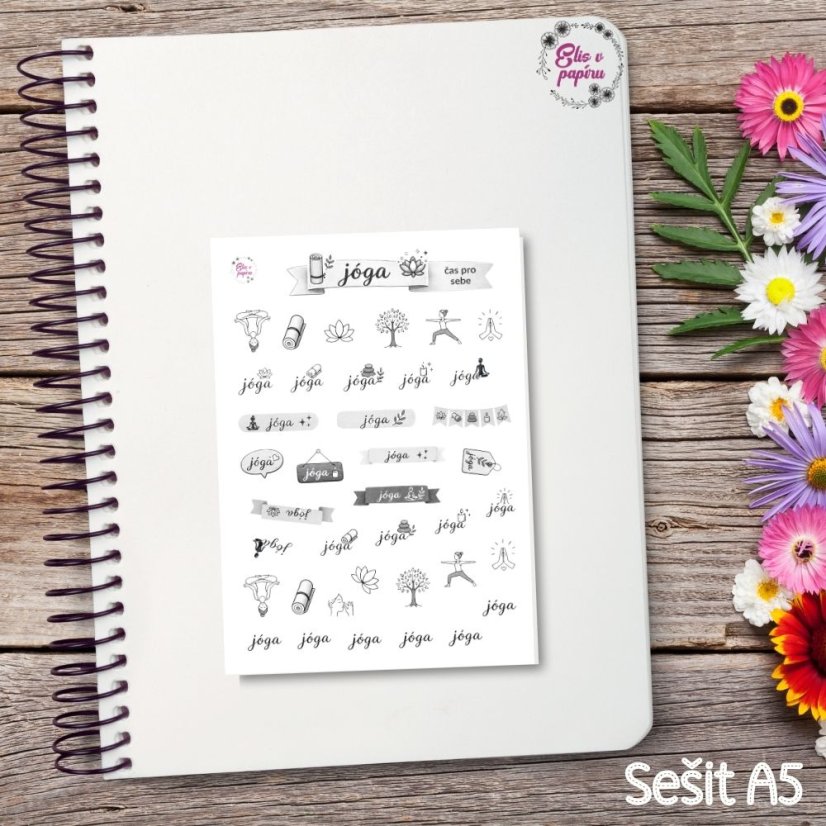 Elis v
papíru
Elis v
papíru
jóga
čas pro
sebe
jóga jóga jóga jóga jóga
jóga jóga
jóga jóga jóga jóga
jóga
jóga
jóga
jóga
jóga jóga
jóga jóga
jóga
jóga jóga jóga jóga jóga
Sešit A5